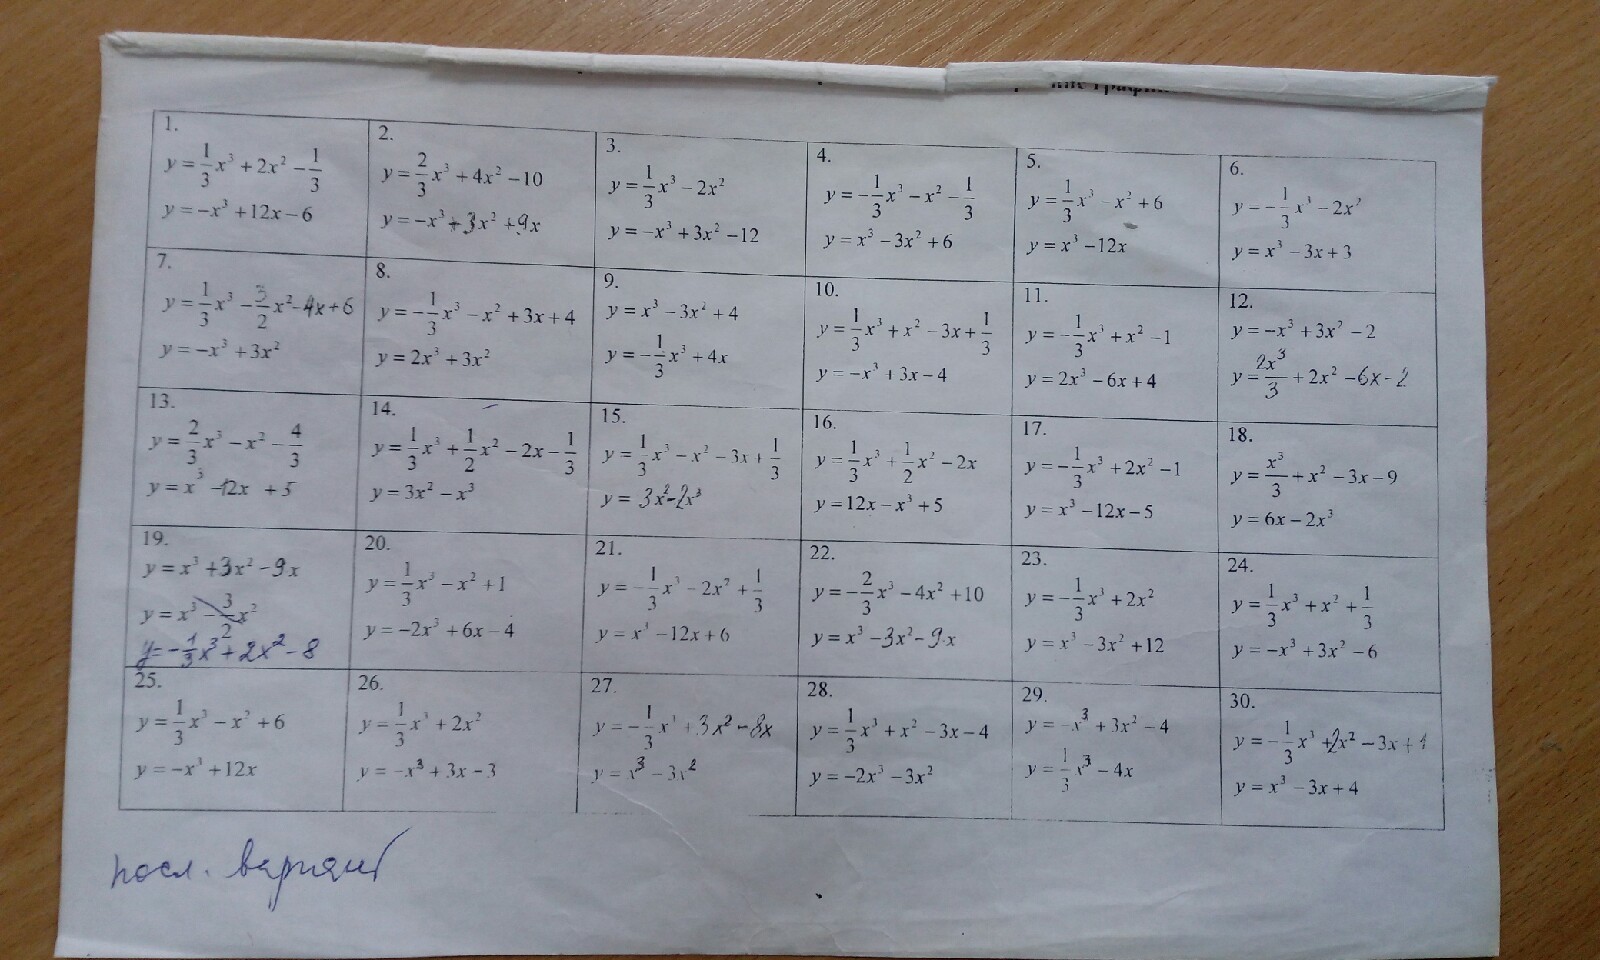 1.
y = 1/3 x³ + 2x² − 1/3
y = −x³ + 12x − 6
2.
y = 2/3 x³ + 4x² − 10
y = −x³ + 3x² + 9x
3.
y = 1/3 x³ − 2x²
y = −x³ + 3x² − 12
4.
y = −1/3 x³ − x² − 1/3
y = x³ − 3x² + 6
5.
y = 1/3 x³ − x² + 6
y = x³ − 12x
6.
y = −1/3 x³ − 2x²
y = x³ − 3x + 3
7.
y = 1/3 x³ − 3/2 x² − 4x + 6
y = −x³ + 3x²
8.
y = −1/3 x³ − x² + 3x + 4
y = 2x³ + 3x²
9.
y = x³ − 3x² + 4
y = −1/3 x³ + 4x
10.
y = 1/3 x³ + x² − 3x + 1/3
y = −x³ + 3x − 4
11.
y = −1/3 x³ + x² − 1
y = 2x³ − 6x + 4
12.
y = −x³ + 3x² − 2
y = 2x³/3 + 2x² − 6x − 2
13.
y = 2/3 x³ − x² − 4/3
y = x³ − 12x + 5
14.
y = 1/3 x³ + 1/2 x² − 2x − 1/3
y = 3x² − x³
15.
y = 1/3 x³ − x² − 3x + 1/3
y = 3x² − 2x³
16.
y = 1/3 x³ + 1/2 x² − 2x
y = 12x − x³ + 5
17.
y = −1/3 x³ + 2x² − 1
y = x³ − 12x − 5
18.
y = x³/3 + x² − 3x − 9
y = 6x − 2x³
19.
y = x³ + 3x² − 9x
y = x³ − 3/2 x²
y = −1/3 x³ + 2x² − 8
20.
y = 1/3 x³ − x² + 1
y = −2x³ + 6x − 4
21.
y = −1/3 x³ − 2x² + 1/3
y = x³ − 12x + 6
22.
y = −2/3 x³ − 4x² + 10
y = x³ − 3x² − 9x
23.
y = −1/3 x³ + 2x²
y = x³ − 3x² + 12
24.
y = 1/3 x³ + x² + 1/3
y = −x³ + 3x² − 6
25.
y = 1/3 x³ − x² + 6
y = −x³ + 12x
26.
y = 1/3 x³ + 2x²
y = −x³ + 3x − 3
27.
y = −1/3 x³ + 3x² − 8x
y = x³ − 3x²
28.
y = 1/3 x³ + x² − 3x − 4
y = −2x³ − 3x²
29.
y = −x³ + 3x² − 4
y = 1/3 x³ − 4x
30.
y = −1/3 x³ + 2x² − 3x +
y = x³ − 3x + 4
посл. вариант